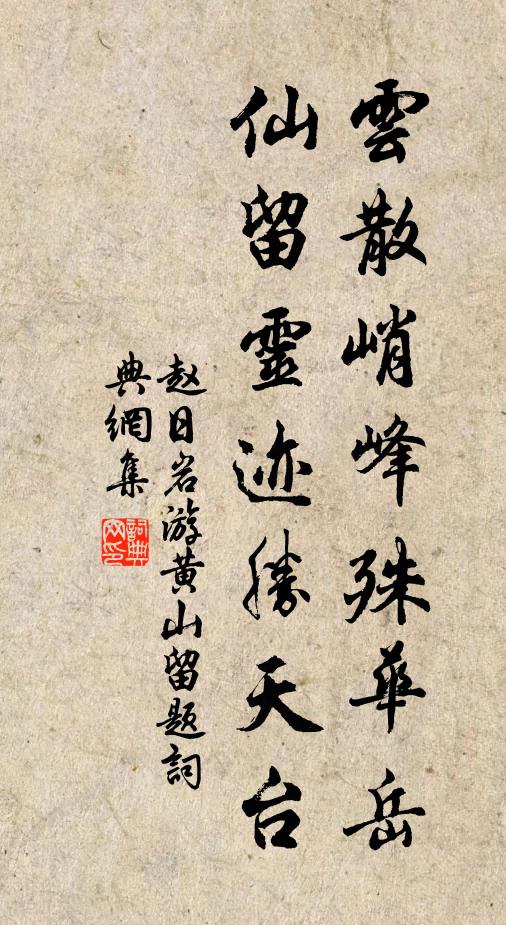 雲散峭峰殊華岳
仙留靈迹勝天台
赵日岩游黄山留题詞
典網集
詞典
网印